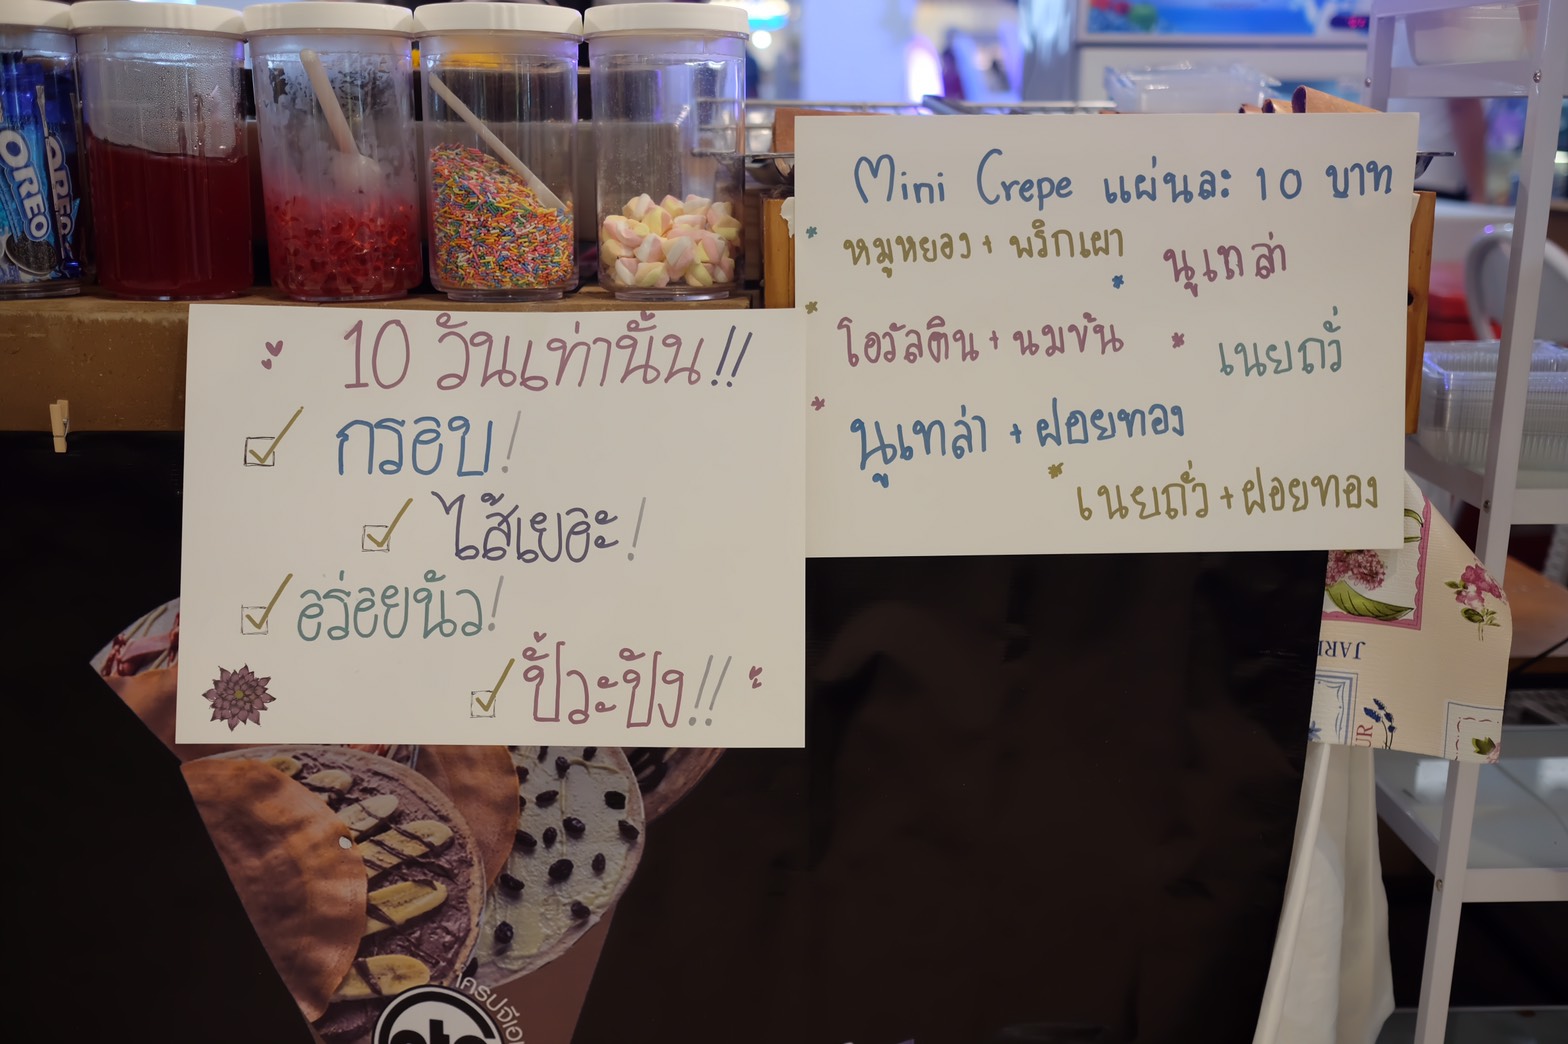 OREO
10 วันเท่านั้น!!
กรอบ!
ไส้เยอะ!
อร่อยนัว!
ปั๊วะปัง!!
Mini Crepe แผ่นละ 10 บาท
หมูหยอง + พริกเผา
นูเทล่า
โอวัลติน + นมข้น
เนยถั่ว
นูเทล่า + ฝอยทอง
เนยถั่ว + ฝอยทอง